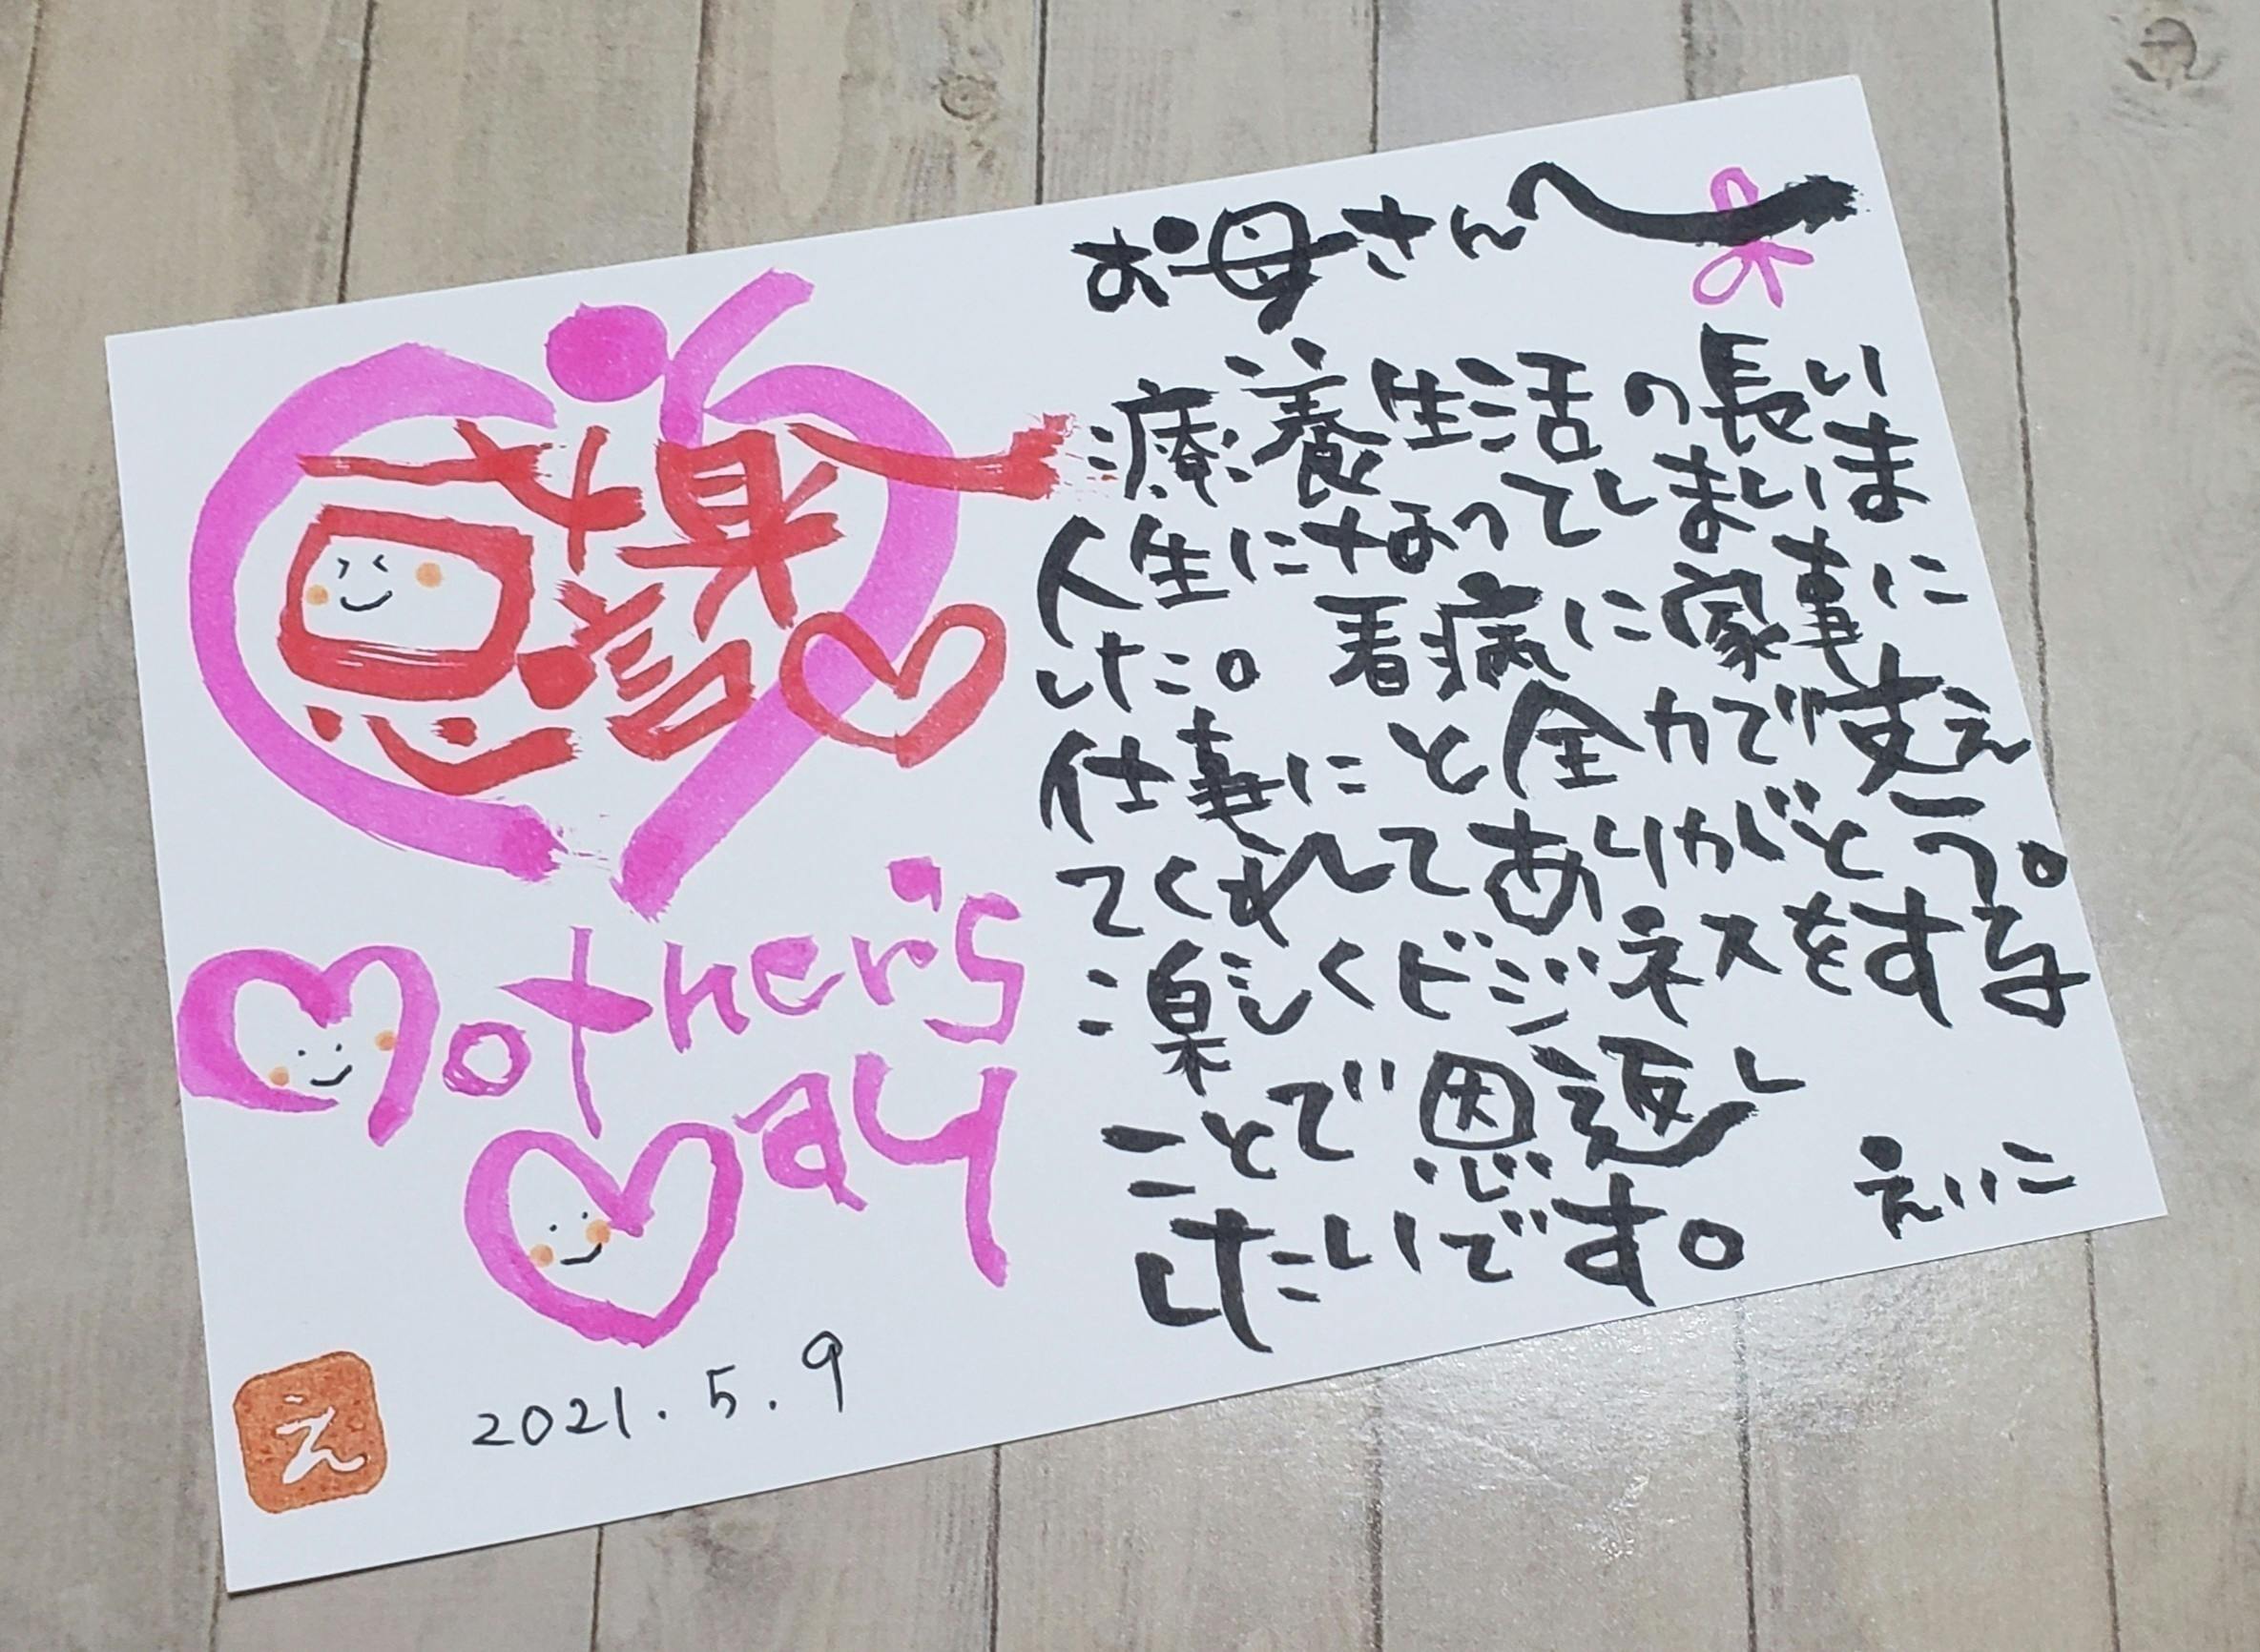 感謝
Mother's
Day
え
2021.5.9
お母さんへ
療養生活の長い
人生になってしまいま
した。看病に家事に
仕事にと全力で支え
てくれてありがとう。
楽しくビジネスをする
ことで恩返し
したいです。
えいこ